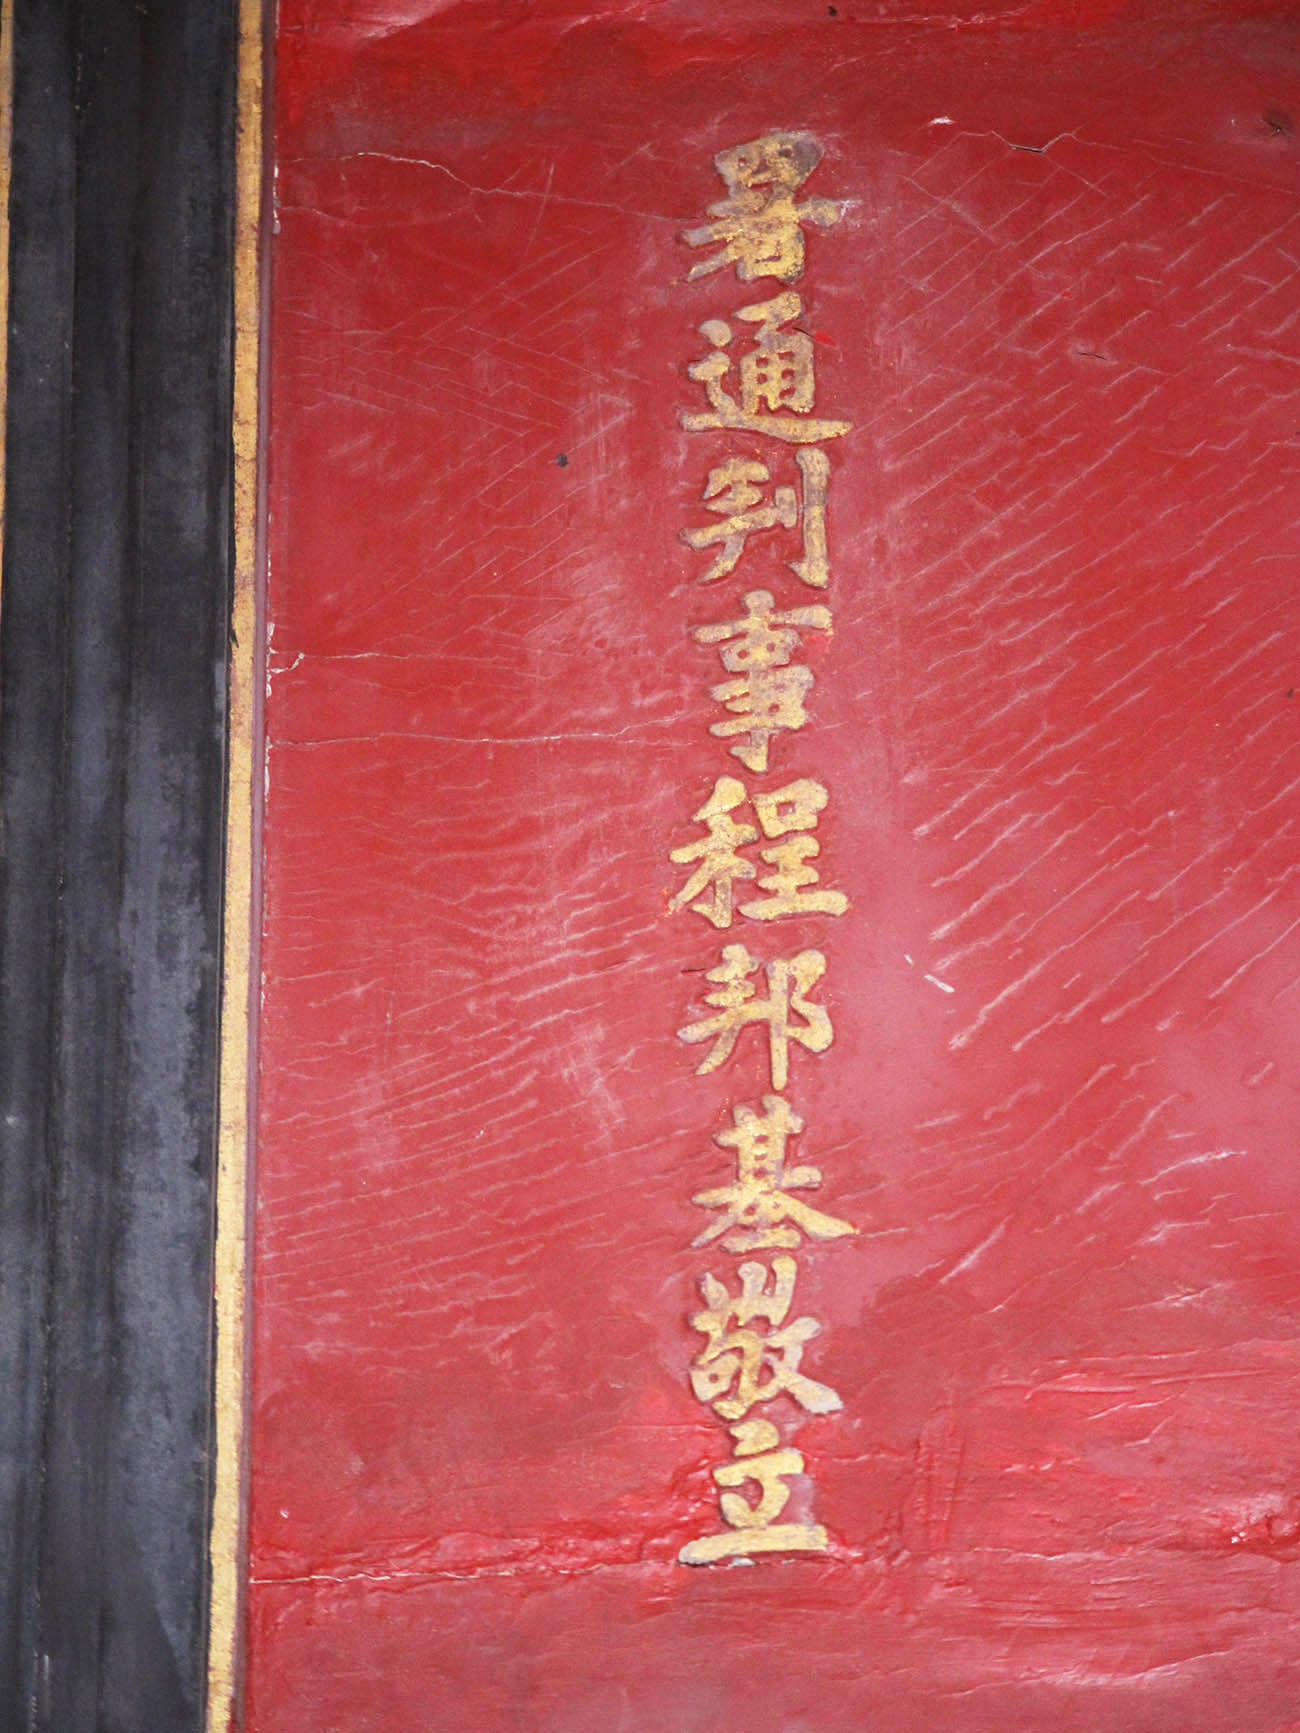 署通判事程邦基敬立